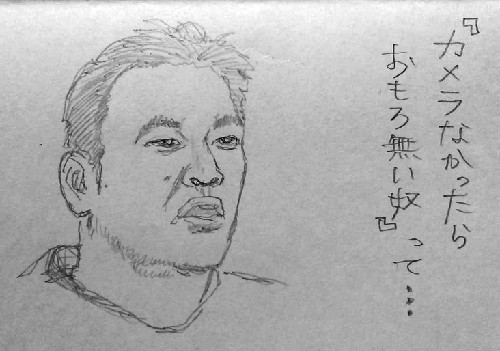 『カメラなかったら
おもろ無い奴』って…